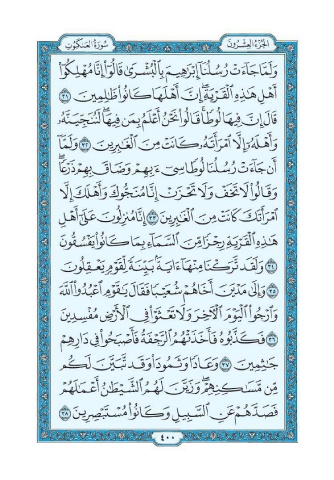 الجزء العشرون
سورة العنكبوت
وَلَمَّا جَآءَتْ رُسُلُنَآ إِبْرَٰهِيمَ بِٱلْبُشْرَىٰ قَالُوٓا۟ إِنَّا مُهْلِكُوٓا۟
أَهْلِ هَٰذِهِ ٱلْقَرْيَةِ ۖ إِنَّ أَهْلَهَا كَانُوا۟ ظَٰلِمِينَ ٣١
قَالَ إِنَّ فِيهَا لُوطًا ۚ قَالُوا۟ نَحْنُ أَعْلَمُ بِمَن فِيهَا ۖ لَنُنَجِّيَنَّهُۥ
وَأَهْلَهُۥٓ إِلَّا ٱمْرَأَتَهُۥ كَانَتْ مِنَ ٱلْغَٰبِرِينَ ٣٢ وَلَمَّآ
أَن جَآءَتْ رُسُلُنَا لُوطًا سِىٓءَ بِهِمْ وَضَاقَ بِهِمْ ذَرْعًا ۖ
وَقَالُوا۟ لَا تَخَفْ وَلَا تَحْزَنْ ۖ إِنَّا مُنَجُّوكَ وَأَهْلَكَ إِلَّا
ٱمْرَأَتَكَ كَانَتْ مِنَ ٱلْغَٰبِرِينَ ٣٣ إِنَّا مُنزِلُونَ عَلَىٰٓ أَهْلِ
هَٰذِهِ ٱلْقَرْيَةِ رِجْزًا مِّنَ ٱلسَّمَآءِ بِمَا كَانُوا۟ يَفْسُقُونَ
٣٤ وَلَقَد تَّرَكْنَا مِنْهَآ ءَايَةًۢ بَيِّنَةً لِّقَوْمٍ يَعْقِلُونَ
٣٥ وَإِلَىٰ مَدْيَنَ أَخَاهُمْ شُعَيْبًا فَقَالَ يَٰقَوْمِ ٱعْبُدُوا۟ ٱللَّهَ
وَٱرْجُوا۟ ٱلْيَوْمَ ٱلْءَاخِرَ وَلَا تَعْثَوْا۟ فِى ٱلْأَرْضِ مُفْسِدِينَ
٣٦ فَكَذَّبُوهُ فَأَخَذَتْهُمُ ٱلرَّجْفَةُ فَأَصْبَحُوا۟ فِى دَارِهِمْ
جَٰثِمِينَ ٣٧ وَعَادًا وَثَمُودَا۟ وَقَد تَّبَيَّنَ لَكُم
مِّن مَّسَٰكِنِهِمْ ۖ وَزَيَّنَ لَهُمُ ٱلشَّيْطَٰنُ أَعْمَٰلَهُمْ
فَصَدَّهُمْ عَنِ ٱلسَّبِيلِ وَكَانُوا۟ مُسْتَبْصِرِينَ ٣٨
٤٠٠